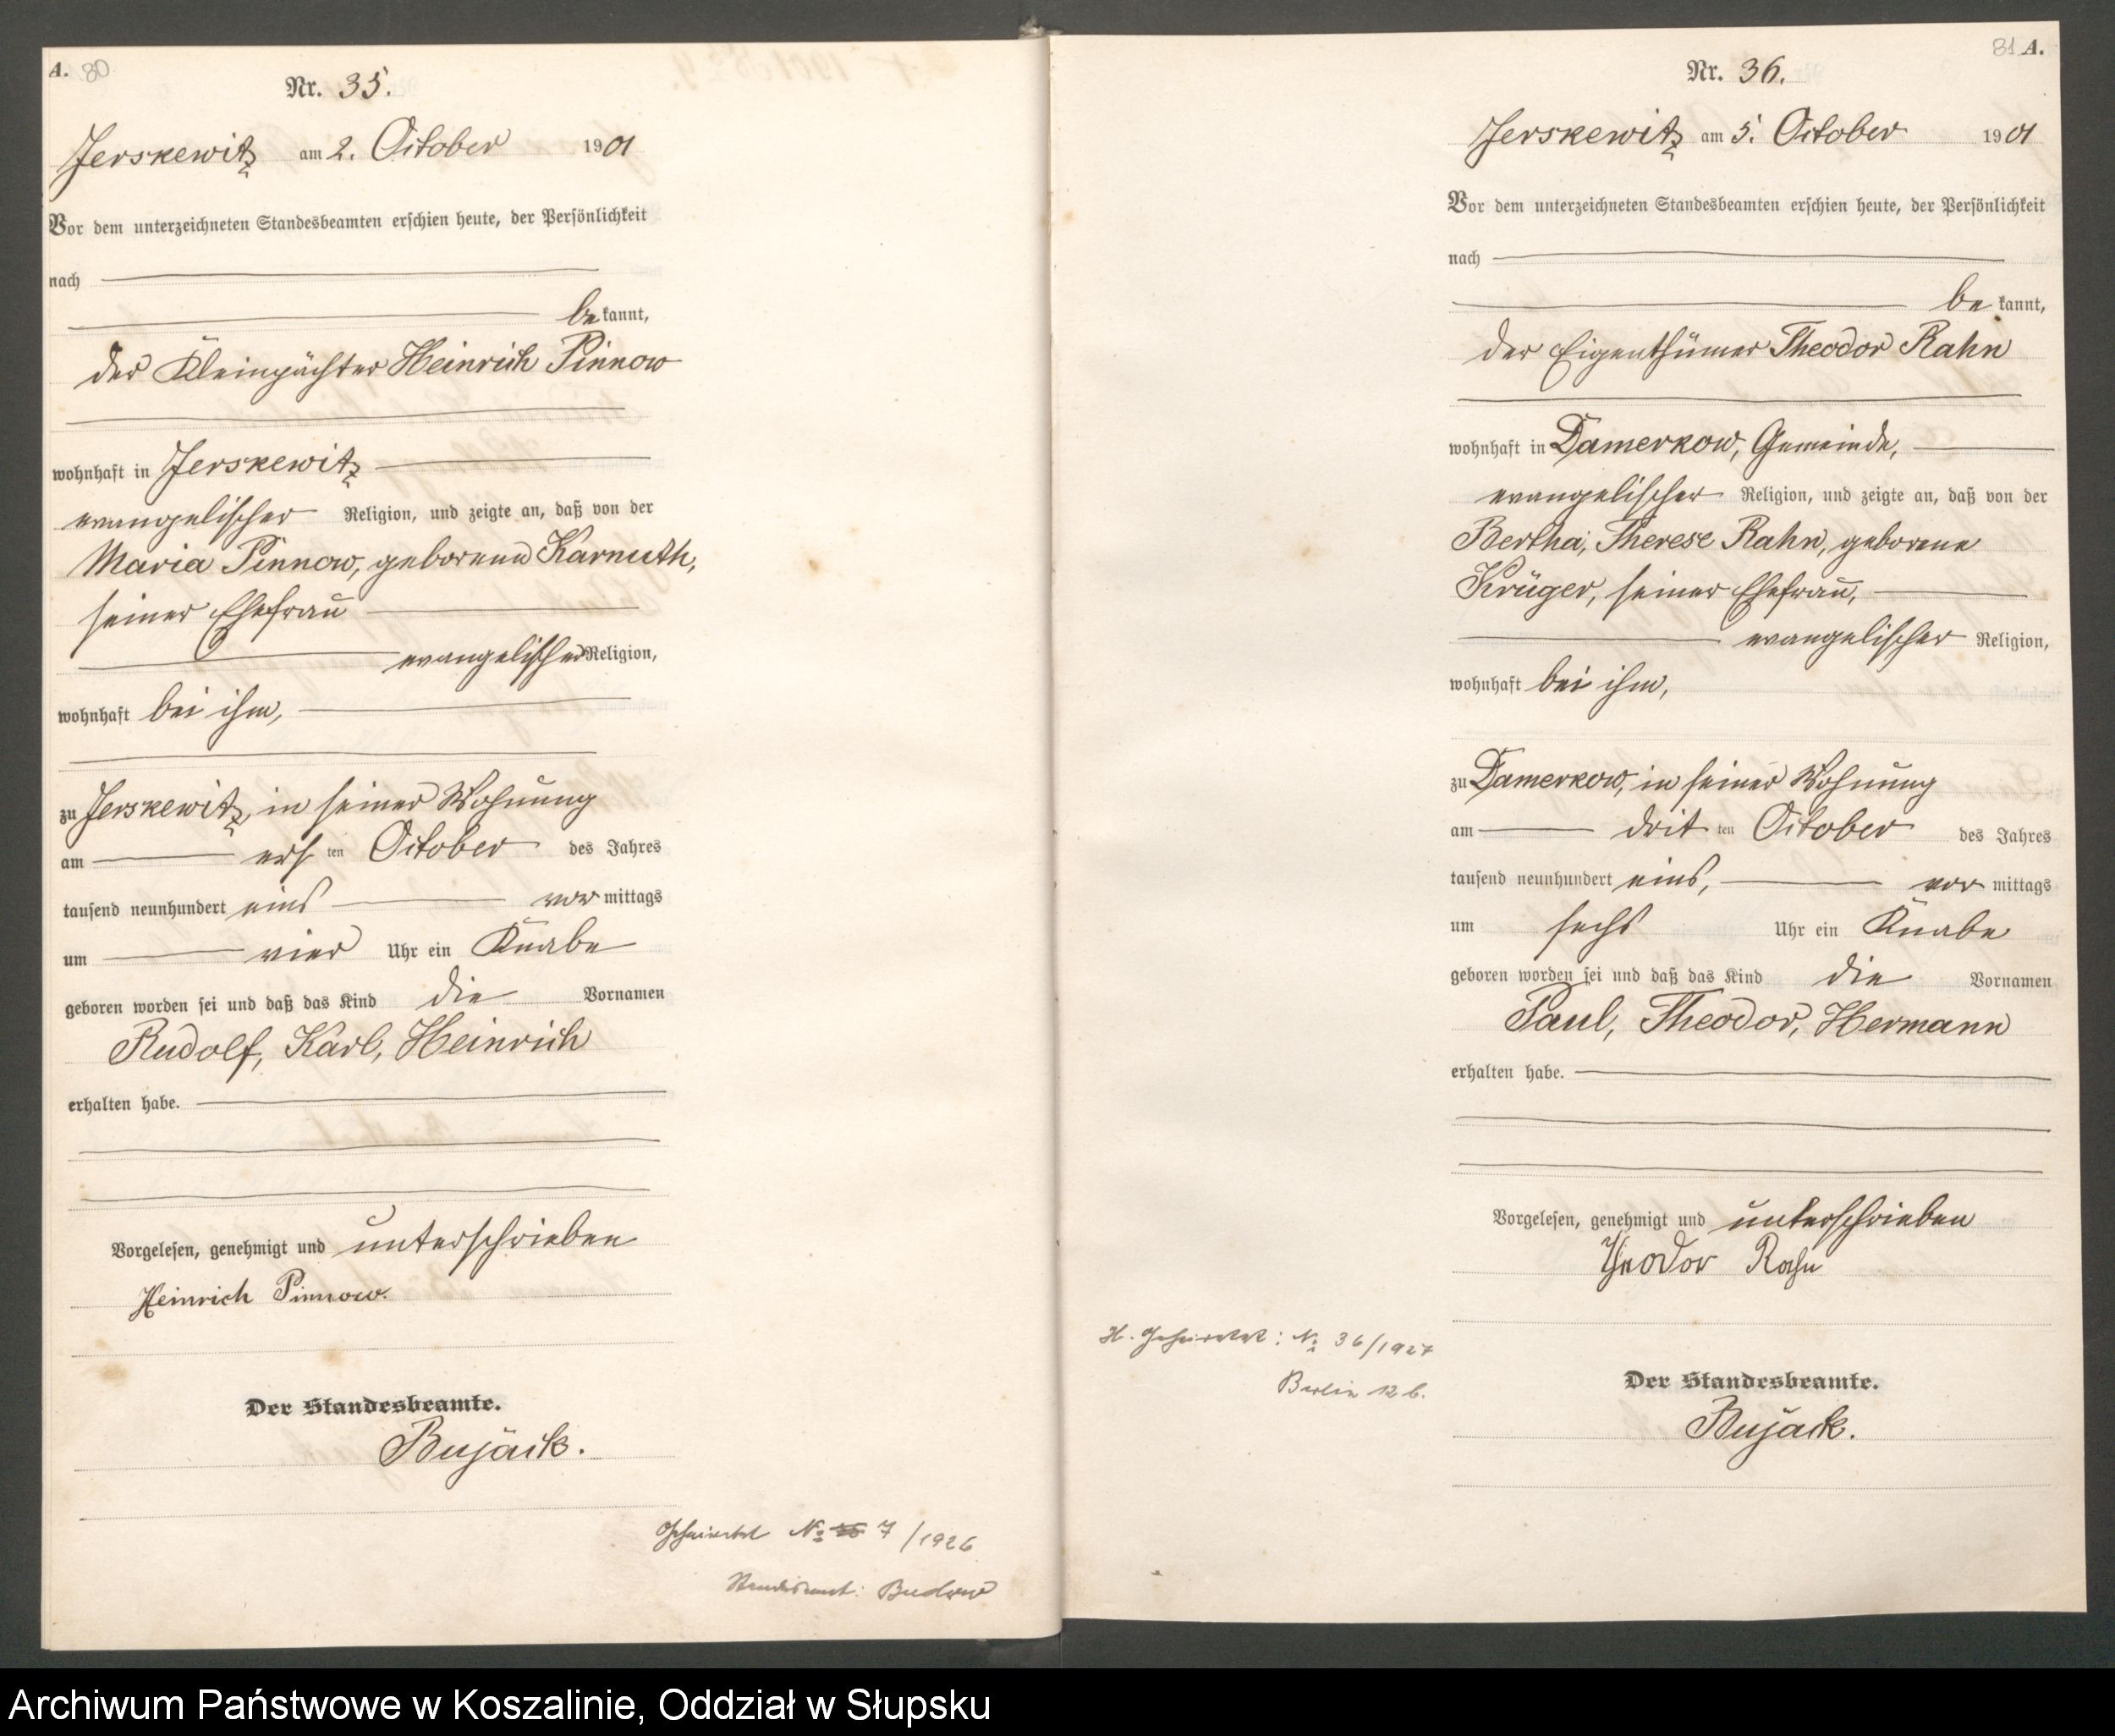 A. 80
Nr. 35.
Jerskewitz am 2. October 1901
Vor dem unterzeichneten Standesbeamten erschien heute, der Persönlichkeit
nach
bekannt,
der Kleinpächter Heinrich Pinnow
wohnhaft in Jerskewitz
evangelischer Religion, und zeigte an, daß von der
Maria Pinnow, geborene Karnuth,
seiner Ehefrau
evangelischer Religion,
wohnhaft bei ihm,
zu Jerskewitz, in seiner Wohnung
am ersten October des Jahres
tausend neunhundert eins vormittags
um vier Uhr ein Knabe
geboren worden sei und daß das Kind die Vornamen
Rudolf, Karl, Heinrich
erhalten habe.
Vorgelesen, genehmigt und unterschrieben
Heinrich Pinnow.
Der Standesbeamte.
Bujack.
Geheiratet No 7/1926
Standesamt: Budow
81 A.
Nr. 36.
Jerskewitz am 5. October 1901
Vor dem unterzeichneten Standesbeamten erschien heute, der Persönlichkeit
nach
bekannt,
der Eigenthümer Theodor Rahn
wohnhaft in Damerkow, Gemeinde,
evangelischer Religion, und zeigte an, daß von der
Bertha, Therese Rahn, geborene
Krüger, seiner Ehefrau,
evangelischer Religion,
wohnhaft bei ihm,
zu Damerkow, in seiner Wohnung
am dritten October des Jahres
tausend neunhundert eins, vormittags
um sechs Uhr ein Knabe
geboren worden sei und daß das Kind die Vornamen
Paul, Theodor, Hermann
erhalten habe.
Vorgelesen, genehmigt und unterschrieben
Theodor Rahn
H. Geheiratet: No 36/1927
Berlin 12 b.
Der Standesbeamte.
Bujack.
Archiwum Państwowe w Koszalinie, Oddział w Słupsku